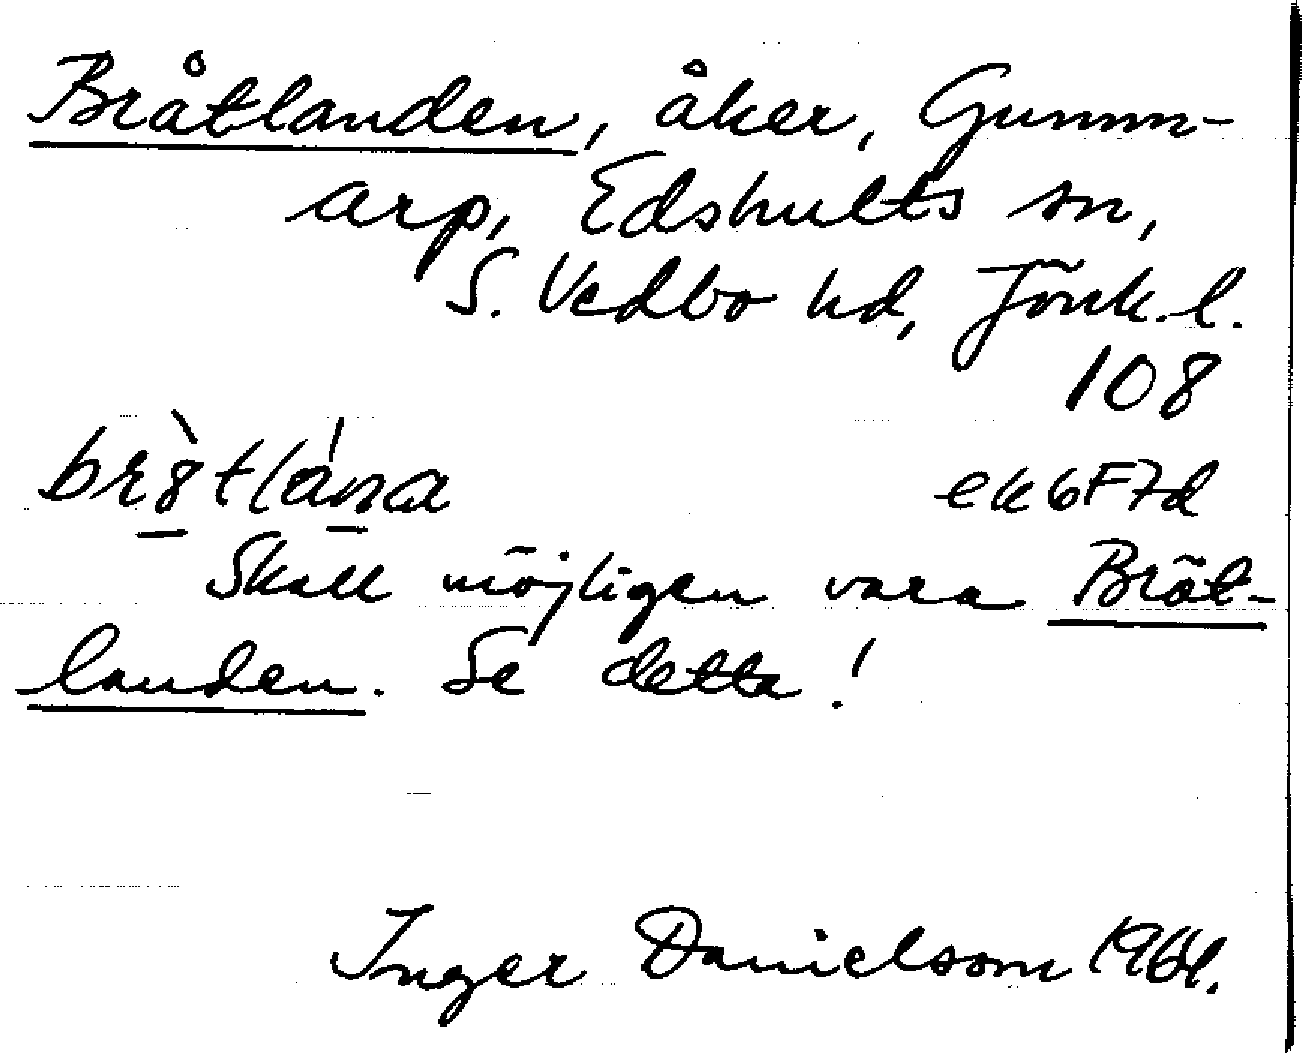 Bråtlanden, åker, Gumm-
arp, Edshults sn,
S. Vedbo hd, Jönk. l.
108
ek6F7d
Skall möjligen vara Bröt-
landen. Se detta!
Inger Danielsom 1964.